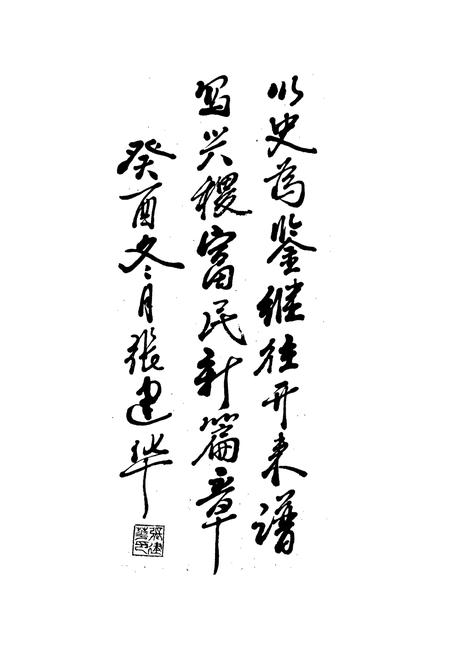 以史为鉴继往开来谱
写兴稷富民新篇章
癸酉冬月张建华
张建华印